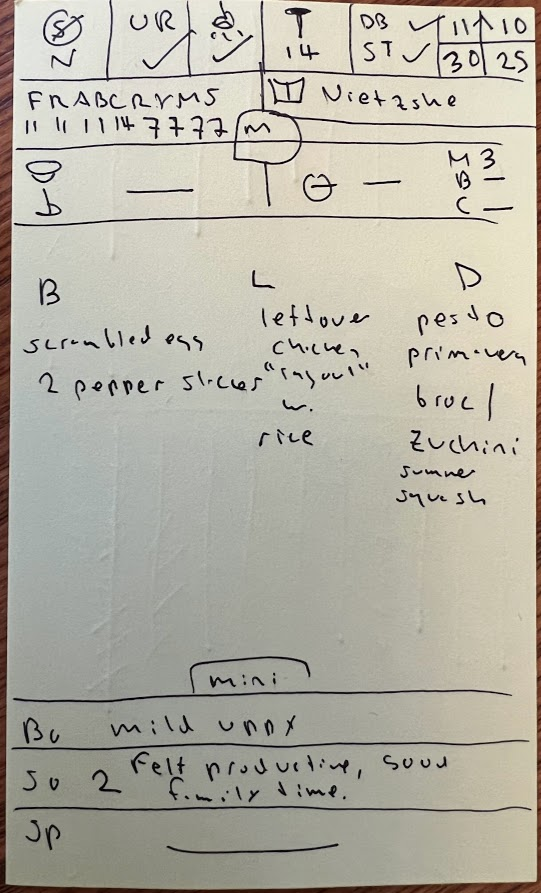 S UR T DB 11 10
N 14 ST 30 25
FRABCRYMS T Nietzshe
11 11 11 14 7 7 77 m
M 3
B —
b — — C —
B L D
leftover pesto
scrambled egg chicken primavera
2 pepper slices "ragout" broc /
w.
rice Zuchini
summer
squash
mini
Bo mild
So 2 Felt productive, good
family time.
Sp —